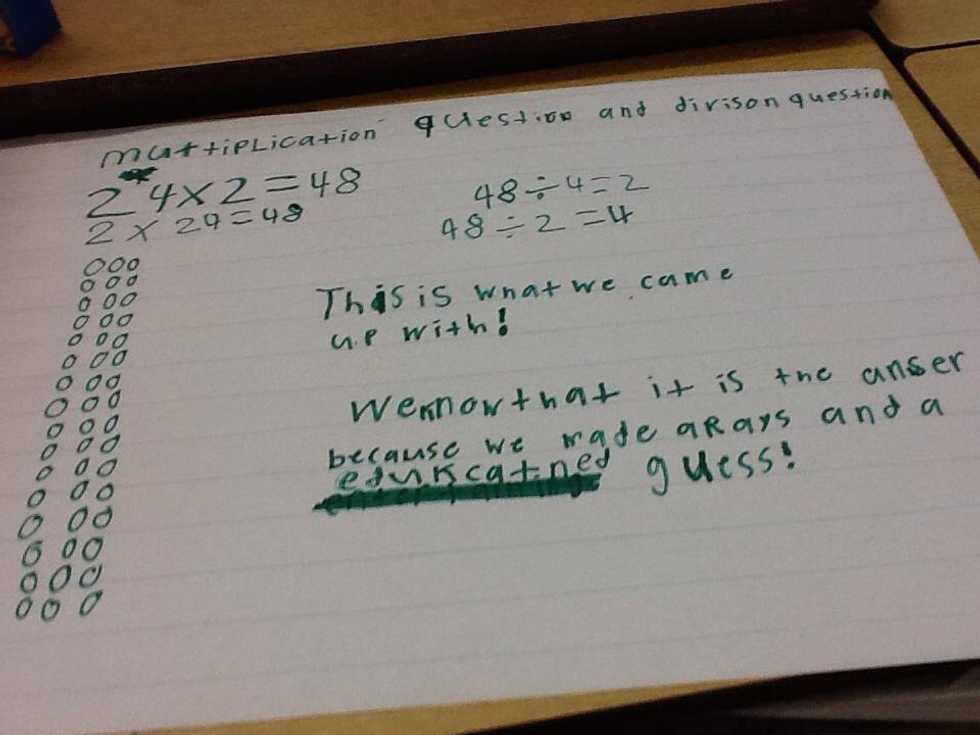 muttiplication question and divison question
24 x 2 = 48
2 x 24 = 48
48 ÷ 4 = 2
48 ÷ 2 = 4
This is what we came
up with!
We know that it is the anser
because we made arays and a
guess!